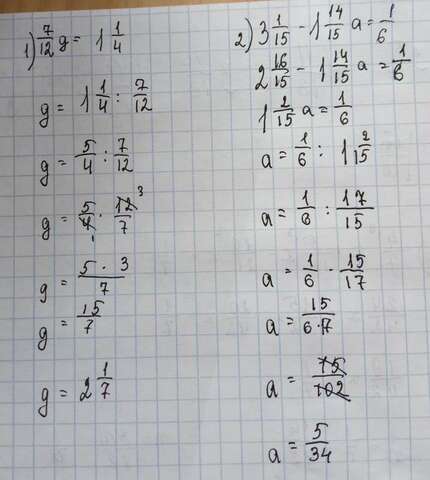 1) 7/12 g = 1 1/4
g = 1 1/4 : 7/12
g = 5/4 : 7/12
g = 5/4 1 · 12/7 3
g = 5 · 3/7
g = 15/7
g = 2 1/7
2) 3 1/15 - 1 14/15 a = 1/6
2 16/15 - 1 14/15 a = 1/6
1 2/15 a = 1/6
a = 1/6 : 1 2/15
a = 1/6 : 17/15
a = 1/6 · 15/17
a = 15/6·17
a = 15/102
a = 5/34